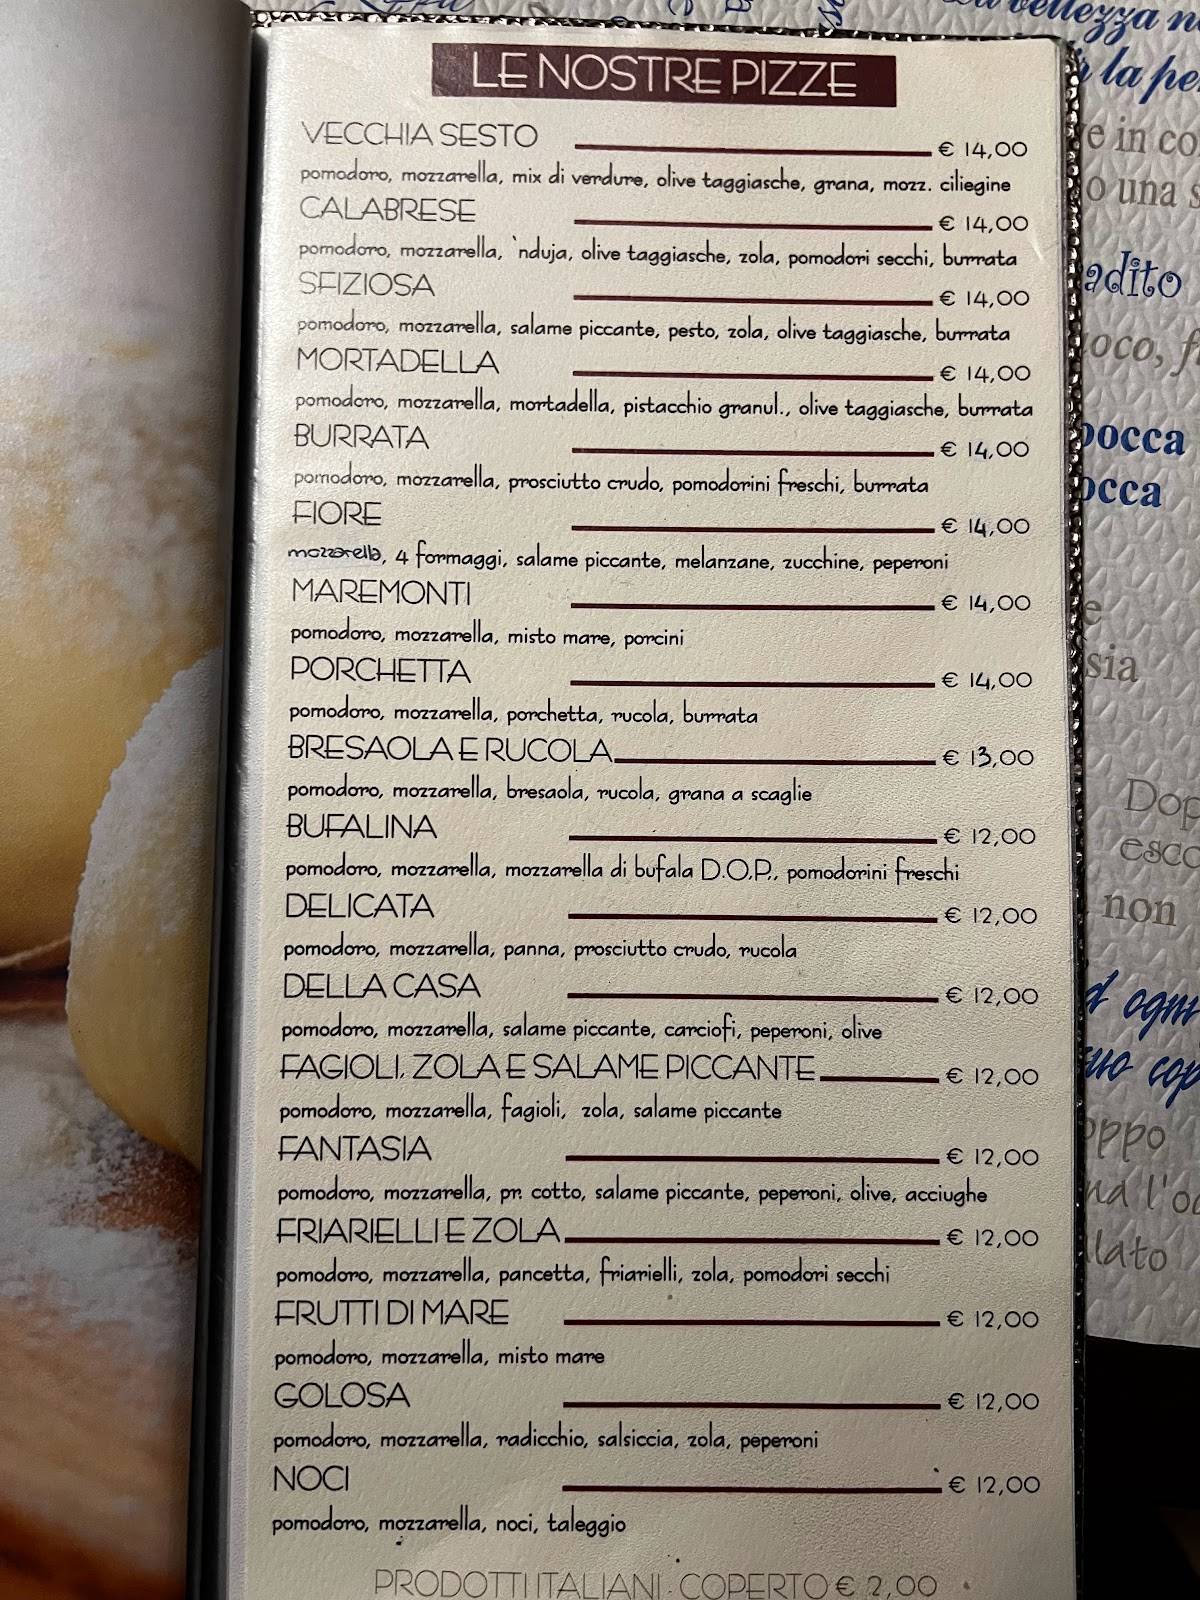 LE NOSTRE PIZZE
VECCHIA SESTO € 14,00
pomodoro, mozzarella, mix di verdure, olive taggiasche, grana, mozz. ciliegine
CALABRESE € 14,00
pomodoro, mozzarella, 'nduja, olive taggiasche, zola, pomodori secchi, burrata
SFIZIOSA € 14,00
pomodoro, mozzarella, salame piccante, pesto, zola, olive taggiasche, burrata
MORTADELLA € 14,00
pomodoro, mozzarella, mortadella, pistacchio granul., olive taggiasche, burrata
BURRATA € 14,00
pomodoro, mozzarella, prosciutto crudo, pomodorini freschi, burrata
FIORE € 14,00
mozzarella, 4 formaggi, salame piccante, melanzane, zucchine, peperoni
MAREMONTI € 14,00
pomodoro, mozzarella, misto mare, porcini
PORCHETTA € 14,00
pomodoro, mozzarella, porchetta, rucola, burrata
BRESAOLA E RUCOLA € 13,00
pomodoro, mozzarella, bresaola, rucola, grana a scaglie
BUFALINA € 12,00
pomodoro, mozzarella, mozzarella di bufala D.O.P., pomodorini freschi
DELICATA € 12,00
pomodoro, mozzarella, panna, prosciutto crudo, rucola
DELLA CASA € 12,00
pomodoro, mozzarella, salame piccante, carciofi, peperoni, olive
FAGIOLI, ZOLA E SALAME PICCANTE € 12,00
pomodoro, mozzarella, fagioli, zola, salame piccante
FANTASIA € 12,00
pomodoro, mozzarella, pr. cotto, salame piccante, peperoni, olive, acciughe
FRIARIELLI E ZOLA € 12,00
pomodoro, mozzarella, pancetta, friarielli, zola, pomodori secchi
FRUTTI DI MARE € 12,00
pomodoro, mozzarella, misto mare
GOLOSA € 12,00
pomodoro, mozzarella, radicchio, salsiccia, zola, peperoni
NOCI € 12,00
pomodoro, mozzarella, noci, taleggio
PRODOTTI ITALIANI - COPERTO € 2,00
bellezza
la
in
o una
bocca
non
ogni